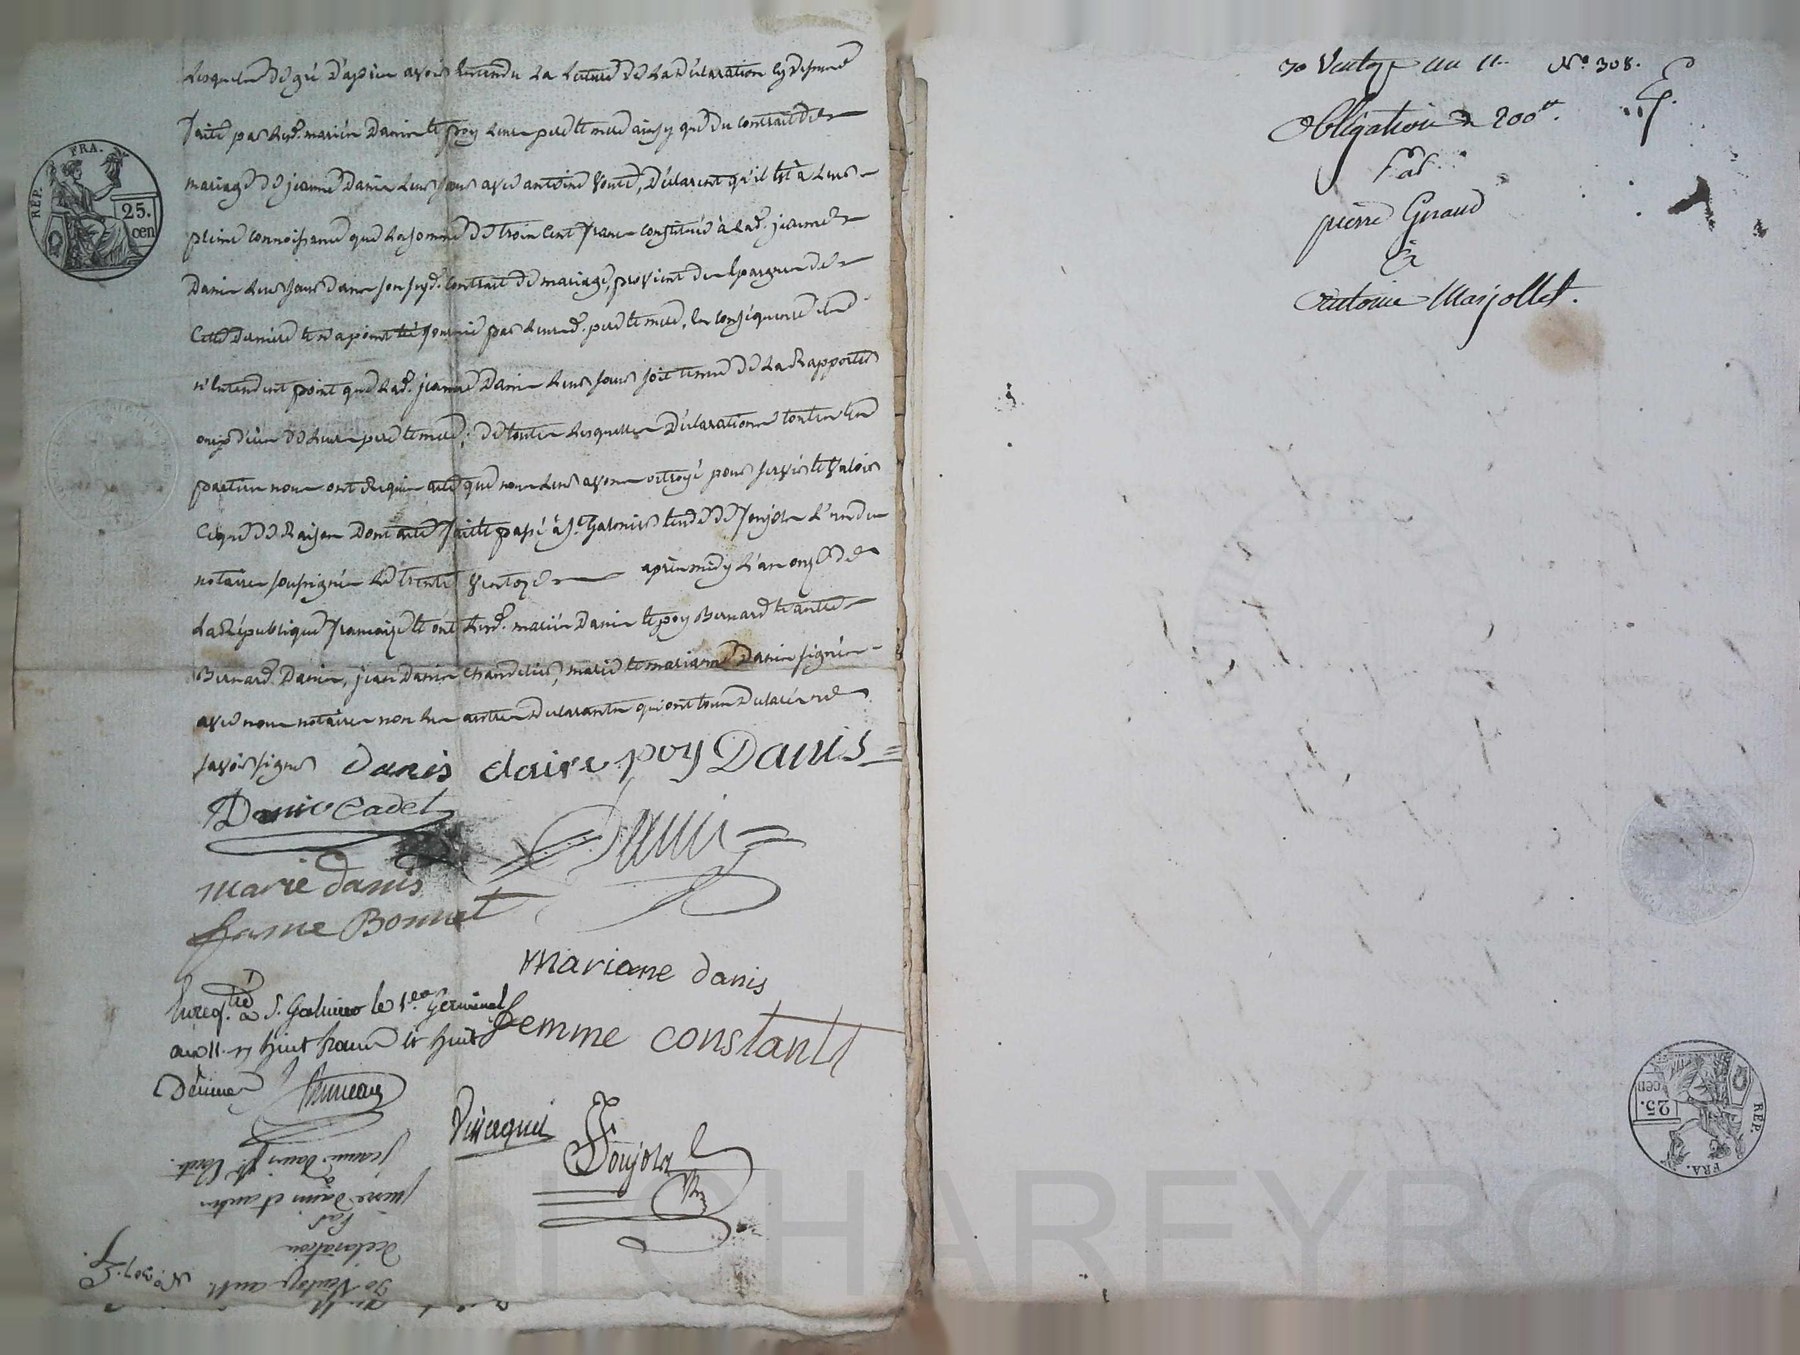 Lesquels de gré d'après avoir entendu la lecture de la déclaration cy dessus
faite par lesd. mariés Danis et poy leurs pere et mere ainsy que du contrait de
mariage de jeanne Danis leur sœur avec antoine, déclarent qu'il est à leur
pleine connoissance que la somme de trois cent francs constitué à lad. jeanne
Danis leur sœur dans son susd. contrait de mariage, provient des Epargnes de
cette derniere et n'a point été fournie par leursd. pere et mere, En conséquence ils
n'Entendent point que lad. jeanne Danis leur sœur soit tenue de la Rapporter
de leurs pere et mere; de toutes lesquelles déclarations toutes les
parties nous ont Requis acte que nous leur avons octroyé pour servir et valoir
ce que de Raison Dont acte fait et passé à St. Galmier Etude de Foujols L'un des
notaires soussignés le trente Ventoze apres midy L'an onze de
La République française et ont lesd. mariés Danis et poy Bernard et autre
Bernard Danis, jean Danis Chandelier, marie et mariane Danis signés
avec nous notaires non les autres Declarants qui ont tous Déclarés ne
savoir signer Danis claire poy Danis
Danis Cadet
Danis
marie danis
fame Bonnet
mariane danis
femme constant
Enregtré à S. Galmier le 1er Germinal
an 11. Rç huit francs et huit
Décimes
Foujols
Nre
REP. FRA.
25.
cen
30 Ventoze an 11. N° 307.
Déclaration
Par
pierre Danis et autres
à
jeanne Danis
30 Ventoze an 11. N° 308.
Obligation de 200ᶠ.
Par
pierre Geraud
à
Antoine Marjollet.
REP. FRA.
25.
cen
CHAREYRON